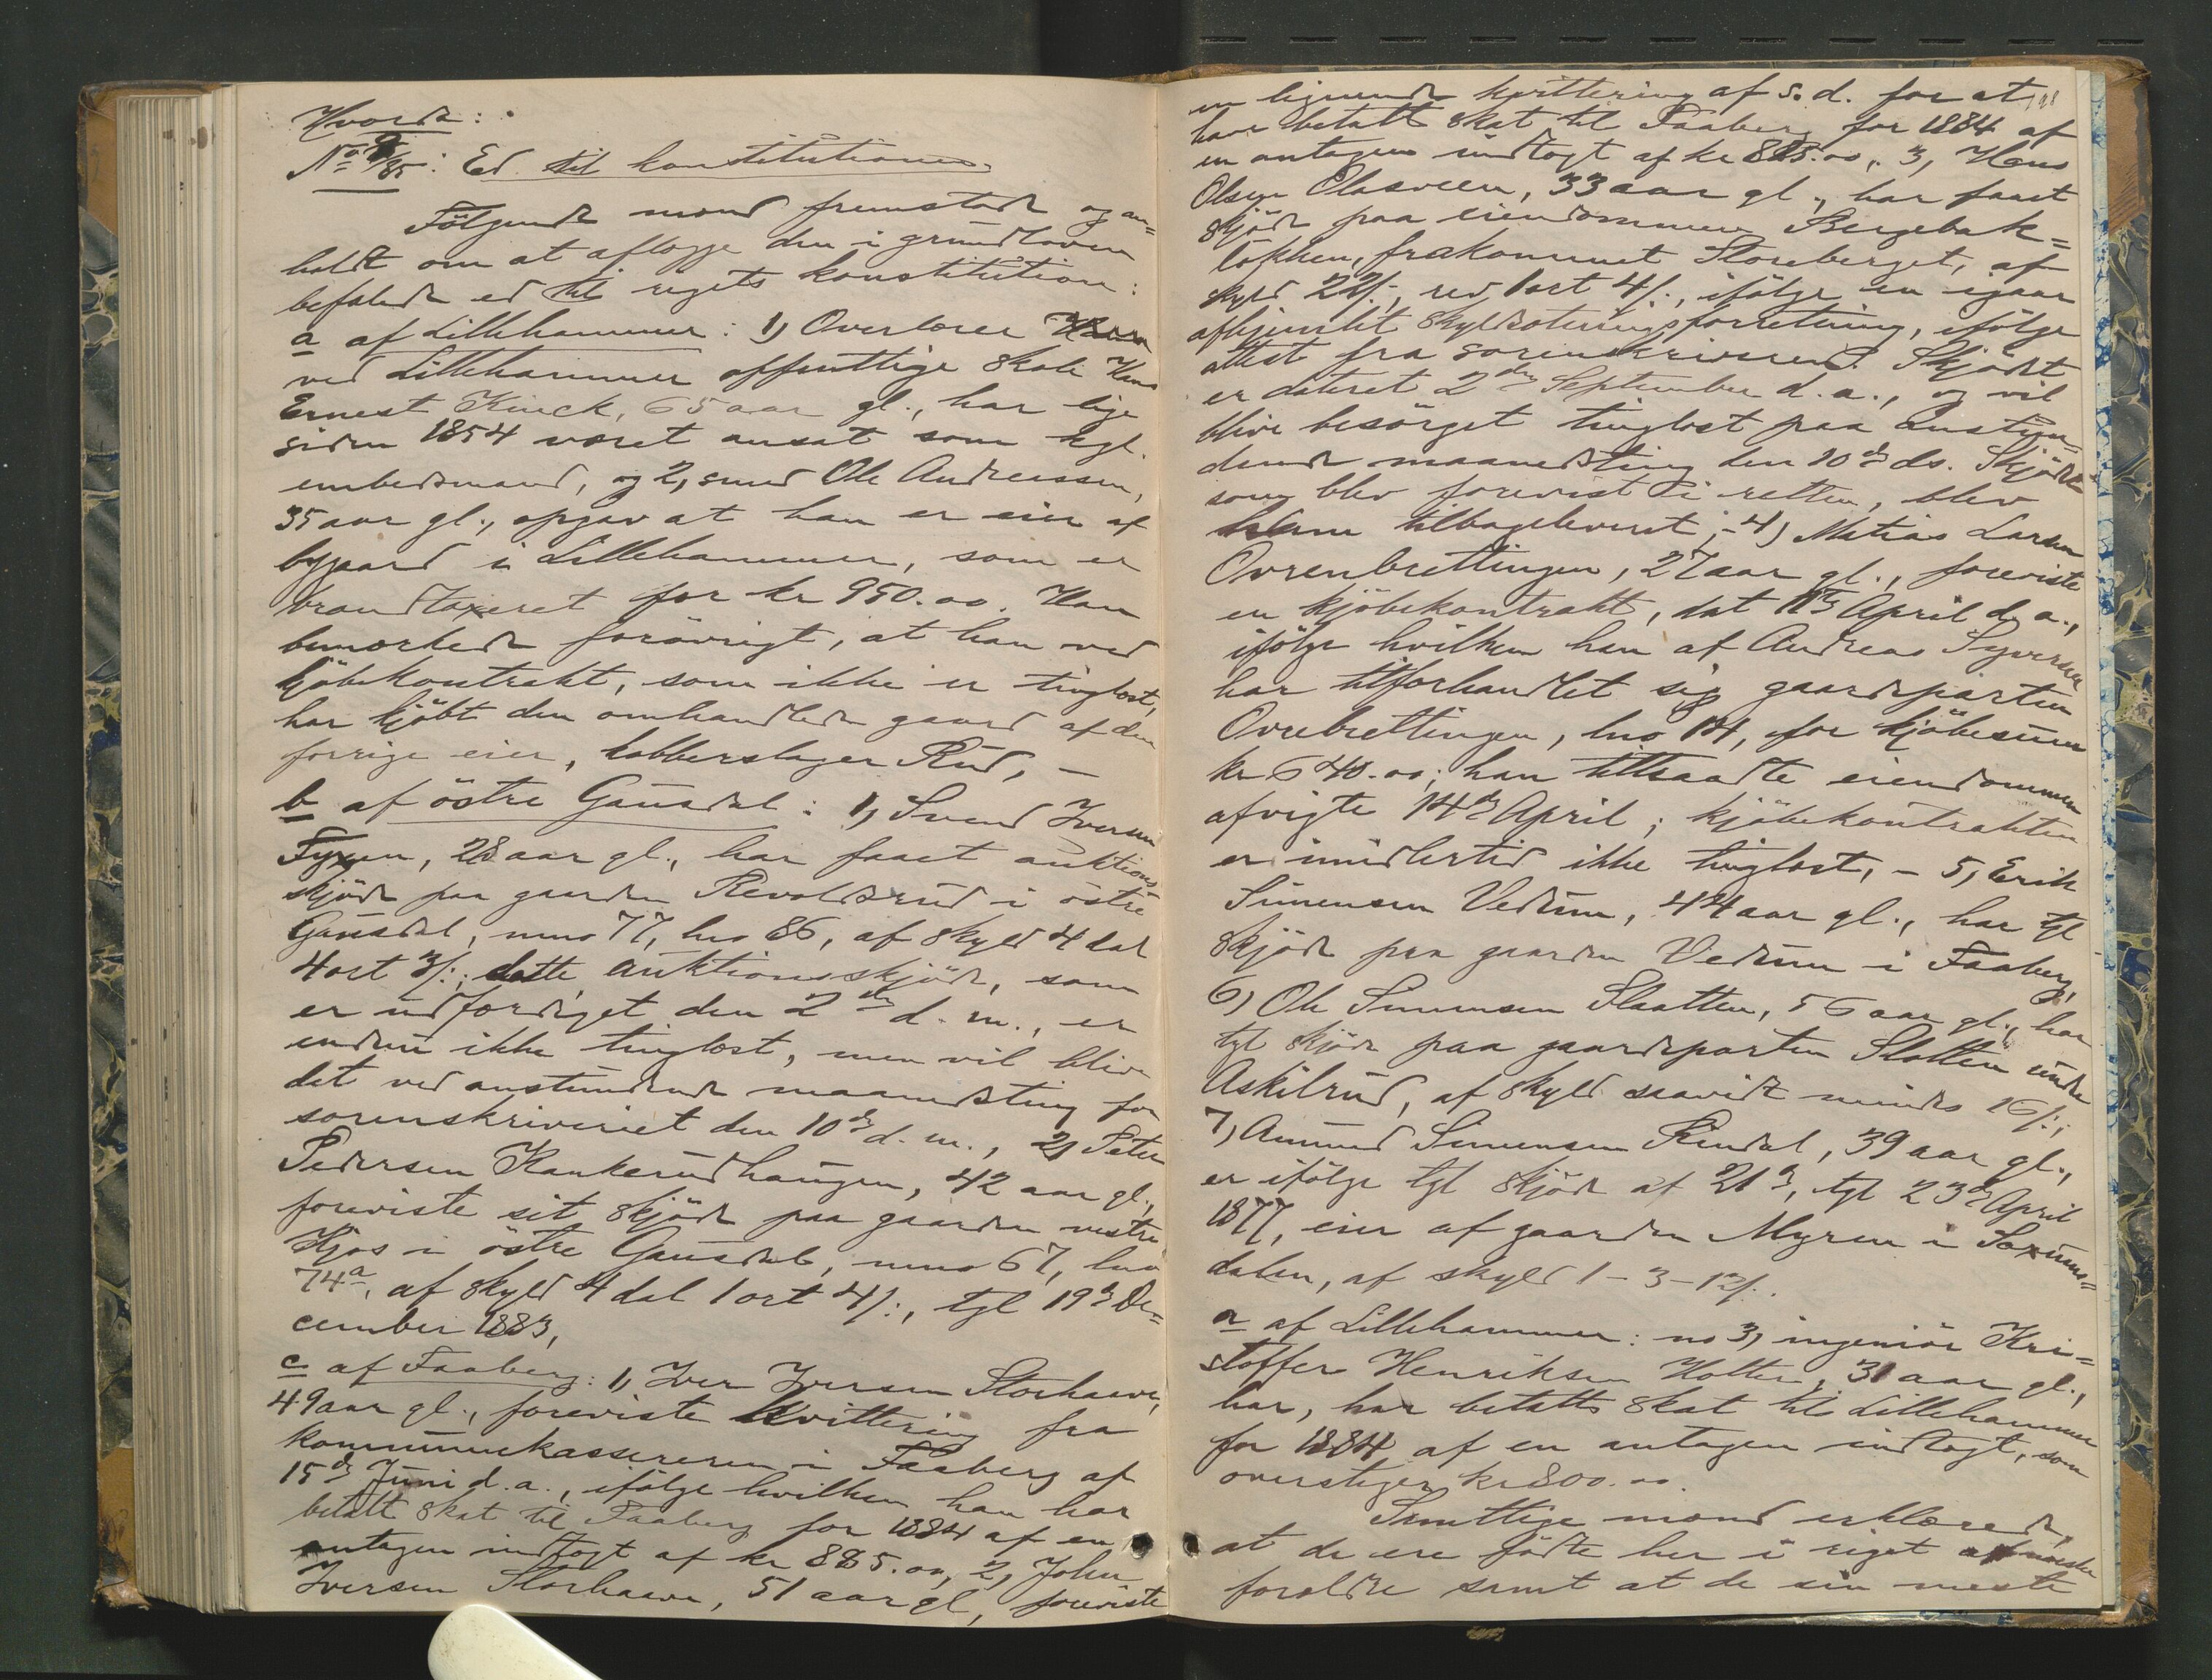 Hvorda:
No 9/85: Ed til konstitutionen.
Følgende mænd fremstod og an=
holdt om at aflægge den i grundloven
befalede ed til rigets konstitution:
a af Lillehammer: 1) Overlærer
ved Lillehammer offentlige skole Hans
Ernest Kinck, 65 aar gl., har lige
siden 1854 været ansat som kgl.
embedsmand, og 2, smed Ole Andreassen,
35 aar gl., opgav at han er eier af
bygaard i Lillehammer, som er
brandtaxeret for kr 950.00. Han
bemærkede forövrigt, at han ved
kjöbekontrakt, som ikke er tinglæst,
har kjöbt den omhandlede gaard af den
forrige eier, kobberslager Rud, –
b af östre Gausdal: 1) Svend Iversen
Fyxen, 28 aar gl., har faaet auktions
skjöde paa gaarden Revoldsrud i östre
Gausdal, mno 77, lno 86, af skyld 4 dal
4 ort 3/:; dette auktionsskjöde, som
er udfærdiget den 2den d. m., er
endnu ikke tinglæst, men vil blive
det ved anstundende maanedsting for
sorenskriveriet den 10de d. m., 2) Peter
Pedersen Kankerudhaugen, 42 aar gl.,
foreviste sit skjöde paa gaarden vestre
Kjos i östre Gausdal, mno 67, lno
74a, af skyld 4 dal 1 ort 4/:, tgl 19de De=
cember 1883,
c af Faaberg: 1) Iver Iversen Storhaave,
49 aar gl., foreviste kvittering fra
kommunekassereren i Faaberg af
15de Juni d. a., ifölge hvilken han har
betalt skat til Faaberg for 1884 af en
antagen indtægt af kr 885.00, 2) John
Iversen Storhaave, 51 aar gl, foreviste
en lignende kvittering af s. d. for at
have betalt skat til Faaberg for 1884 af
en antagen indtægt af kr 885.00, 3, Hans
Olsen Olasveen, 33 aar gl., har faaet
skjöde paa eiendommen Bergebak=
lökken, frakommet Storeberget, af
skyld 22/:, rev 1 ort 4/:, ifölge en igaar
afhjemlet skyldsætningsforretning, ifölge
attest fra sorenskriveren. Skjödet
er dateret 2den September d. a., og vil
blive besörget tinglæst paa anstun
dende maanedsting den 10de ds. Skjödet
som blev forevist i retten, blev
ham tilbageleveret; – 4) Matias Larsen
Övrenbrettingen, 27 aar gl., foreviste
en kjöbekontrakt, dat 14de April d. a.,
ifölge hvilken han af Andreas Syversen
har tilforhandlet sig gaardparten
Övrebrettingen, lno 14, for kjöbesum
kr 640.00; han tiltraadte eiendommen
afvigte 14de April; kjöbekontrakten
er imidlertid ikke tinglæst, – 5, Erik
Simensen Vedum, 44 aar gl., har tgl
skjöde paa gaarden Vedum i Faaberg,
6) Ole Simensen Slaatten, 56 aar gl., har
tgl skjöde paa gaardparten Slatten under
Askilrud, af skyld saavidt mindes 16/:;
7) Amund Simensen Rindal, 39 aar gl.,
er ifölge tgl skjöde af 21de, tgl 23de April
1877, eier af gaarden Myren i Saxums=
dalen, af skyld 1 – 3 – 12/:.
a af Lillehammer: no 3, ingeniör Kri=
stoffer Henriksen Holter, 31 aar gl.,
har, har betalt skat til Lillehammer
for 1884 af en antagen indtægt, som
overstiger kr 800.00.
Samtlige mænd erklærede,
at de ere födte her i riget af norske
forældre samt at de sin meste